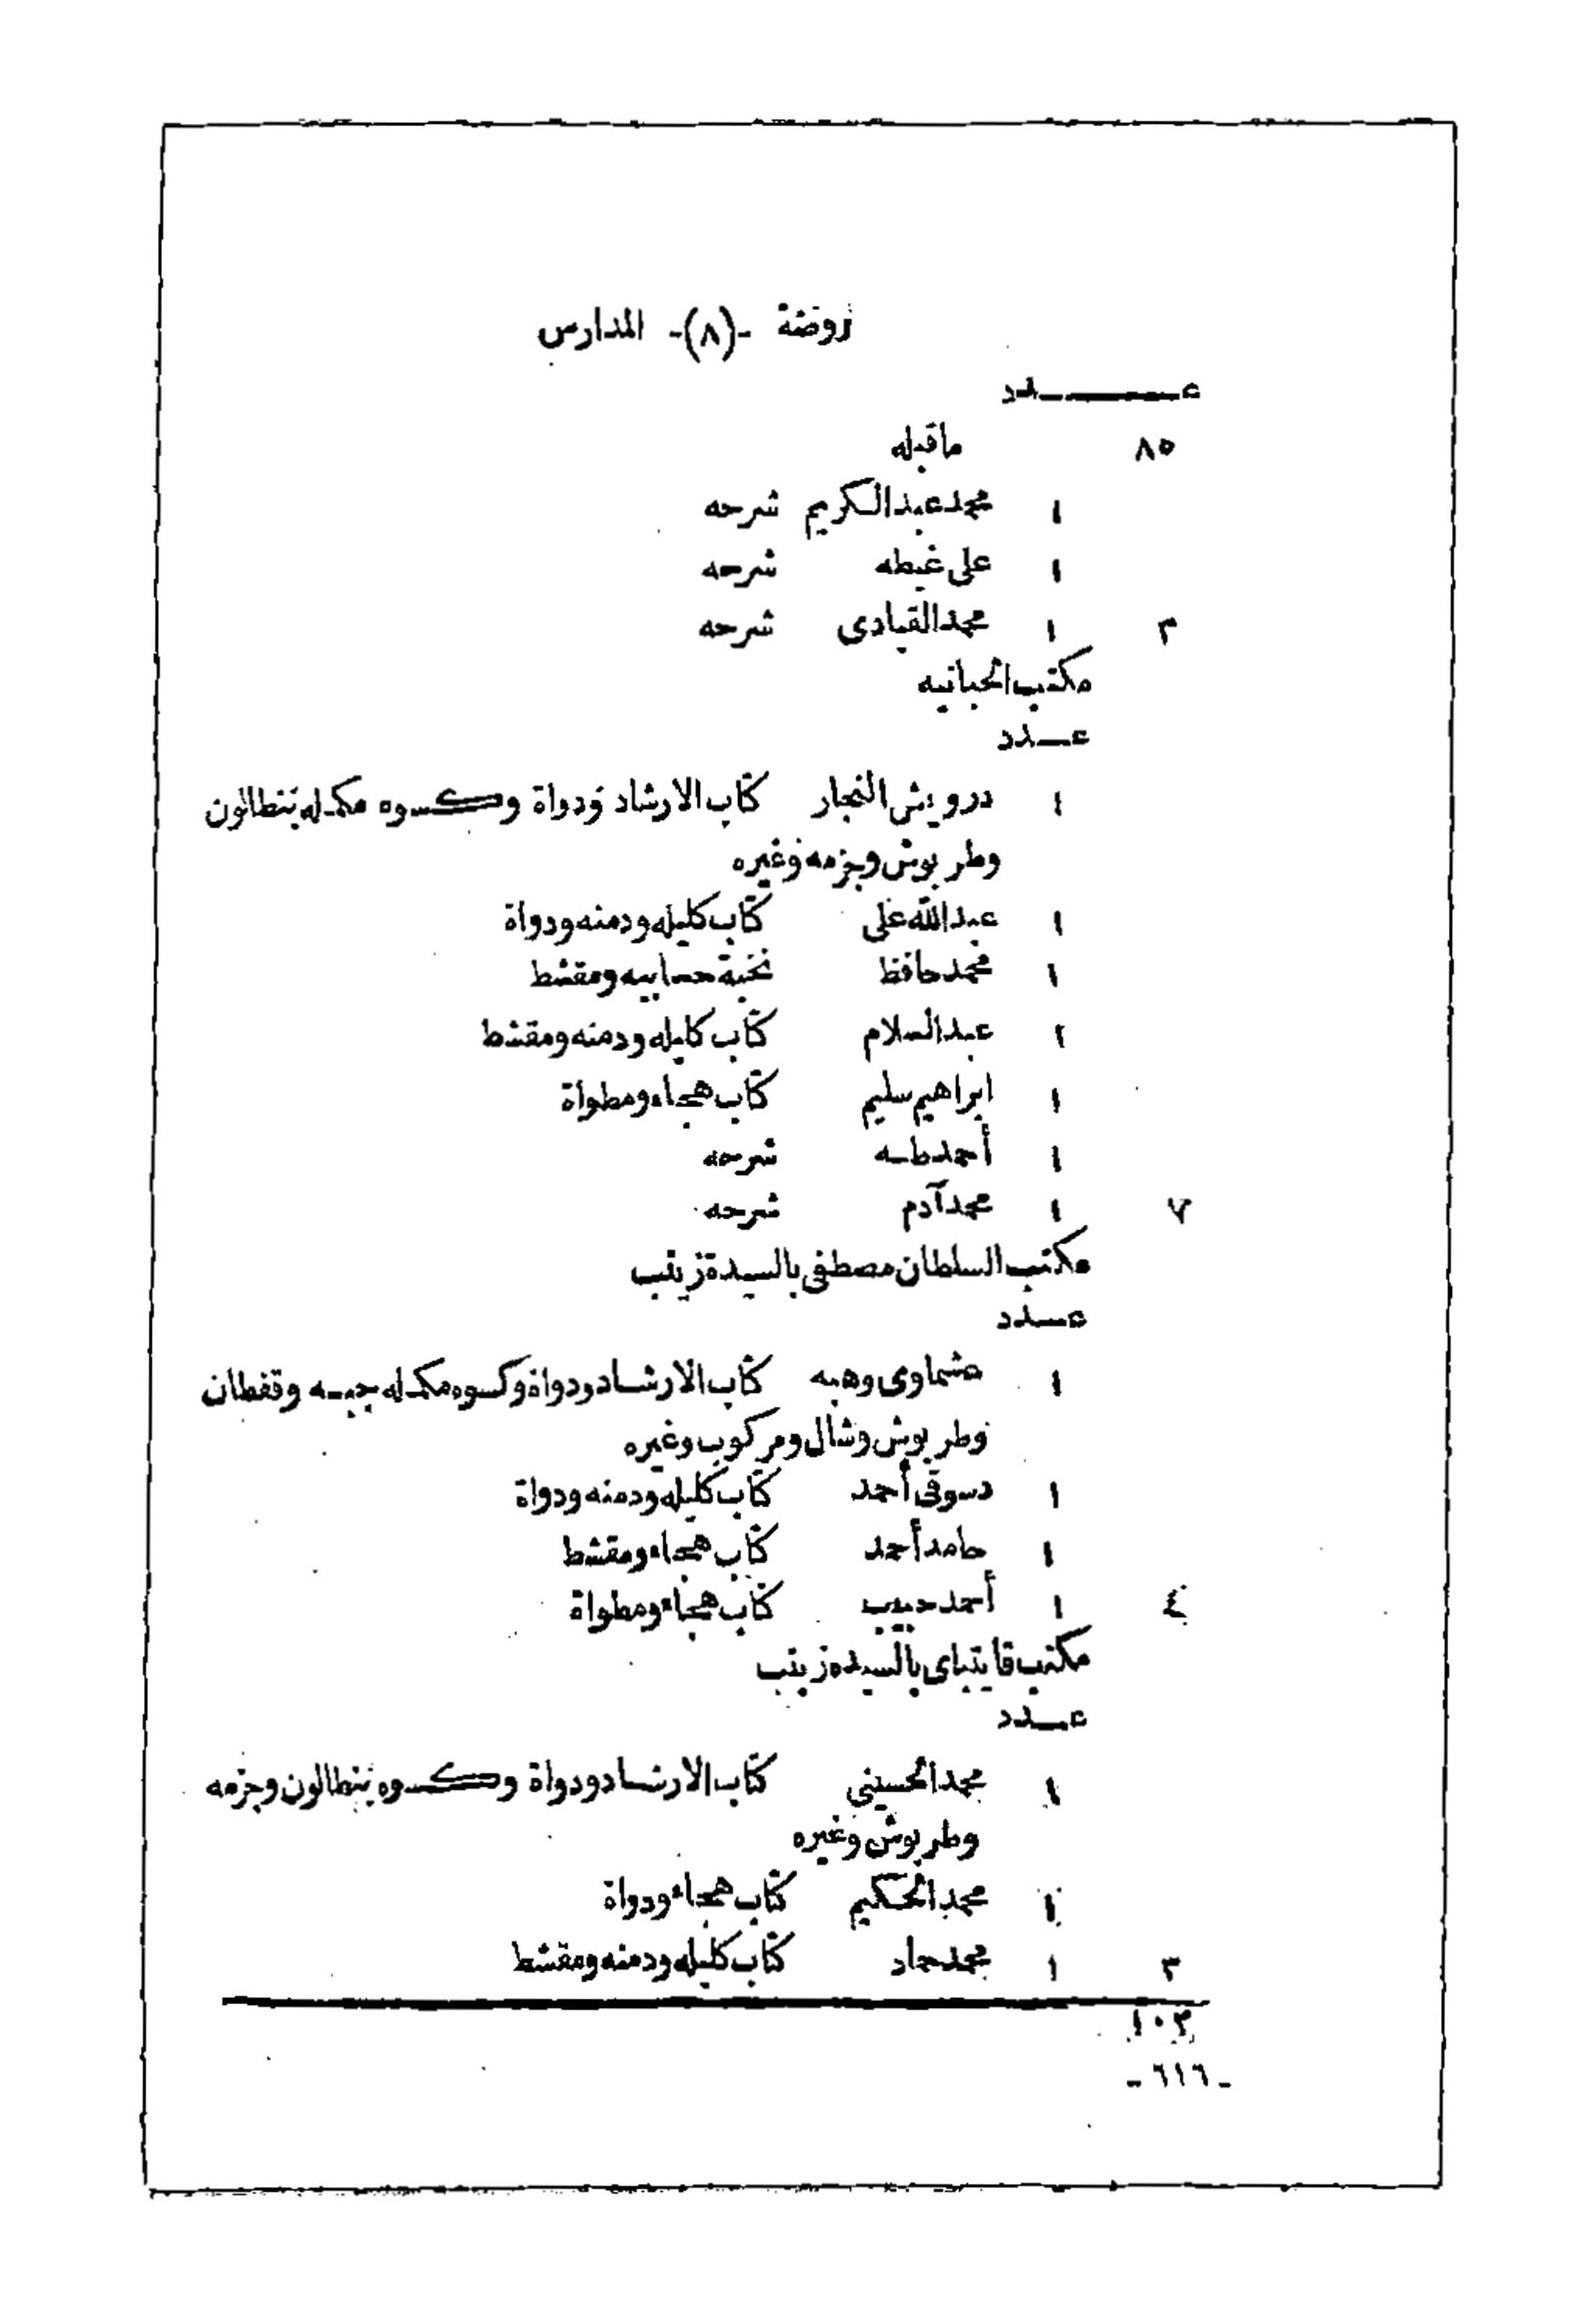 روضة -(٨)- المدارس
عــــدد
٨٥ ماقبله
١ محمد عبد الكريم شرحه
١ على غيطه شرحه
٣ ١ محمد القيادى شرحه
مكتب الحبانيه
عــدد
١ درويش النجار كتاب الارشاد ودواة وكسوه مكمله بنطالون
وطربوش وجزمه وغيره
١ عبد الله على كتاب كليله ودمنه ودواة
١ محمد حافظ نخبة حسابيه ومقشط
١ عبد السلام كتاب كليله ودمنه ومقشط
١ ابراهيم سليم كتاب هجاء ومطواة
١ أحمد طه شرحه
٧ ١ محمد آدم شرحه
مكتب السلطان مصطفى بالسيدة زينب
عــدد
١ عشماوى وهبه كتاب الارشاد ودواة وكسوه مكمله جبه وقفطان
وطربوش وشال ومركوب وغيره
١ دسوقى أحمد كتاب كليله ودمنه ودواة
١ حامد أحمد كتاب هجاء ومقشط
٤ ١ أحمد حبيب كتاب هجاء ومطواة
مكتب قايتباى بالسيده زينب
عــدد
١ محمد الحسينى كتاب الارشاد ودواة وكسوه بنطالون وجزمه
وطربوش وغيره
١ محمد الحكيم كتاب هجاء ودواة
٣ ١ محمد حماد كتاب كليله ودمنه ومقشط
١٠٢
- ٦١٦ -